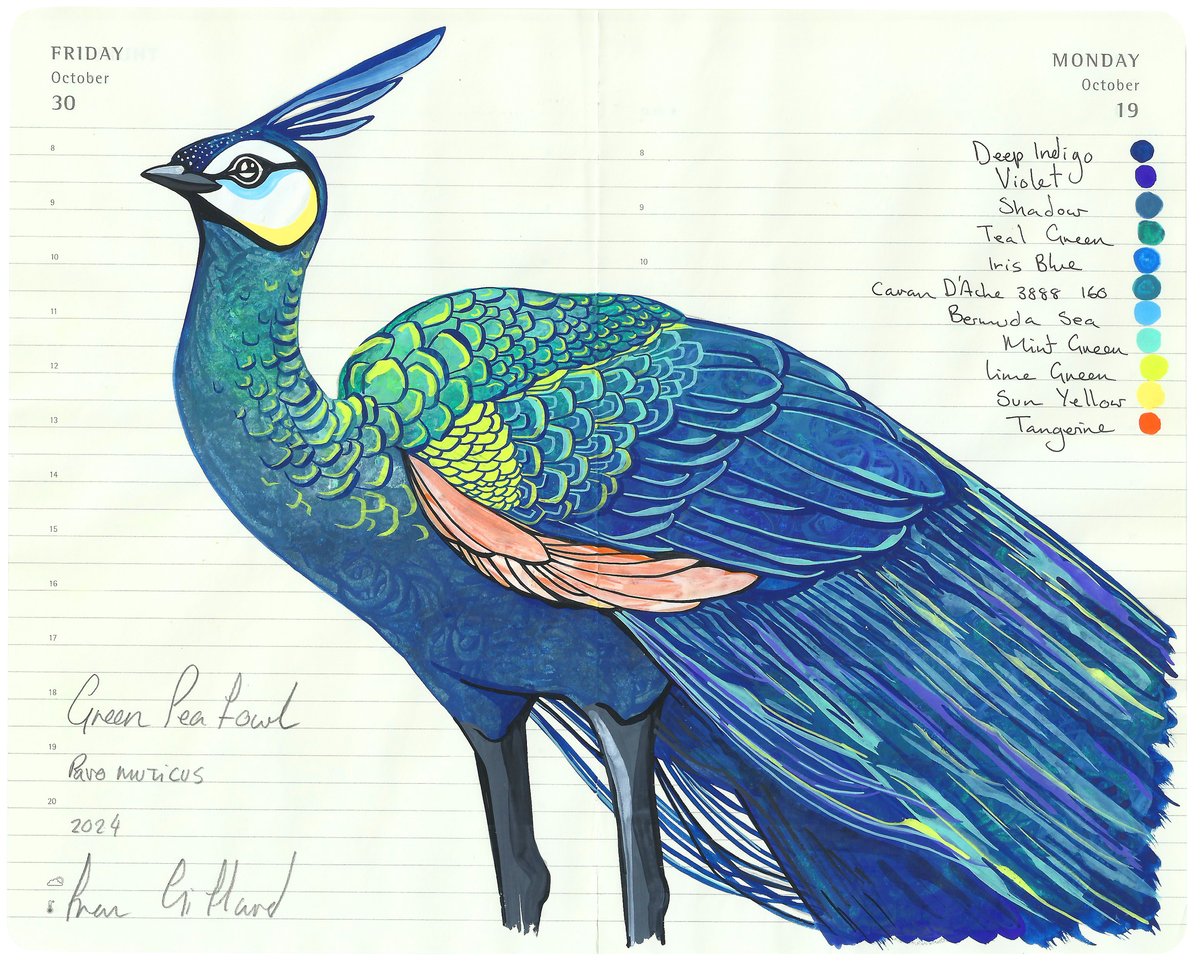 FRIDAY
October
30
8
9
10
11
12
13
14
15
16
17
18
19
20
Green Pea Fowl
Pavo muticus
2024
MONDAY
October
19
8
9
10
Deep Indigo
Violet
Shadow
Teal Green
Iris Blue
Caran D'Ache 3888 160
Bermuda Sea
Mint Green
Lime Green
Sun Yellow
Tangerine